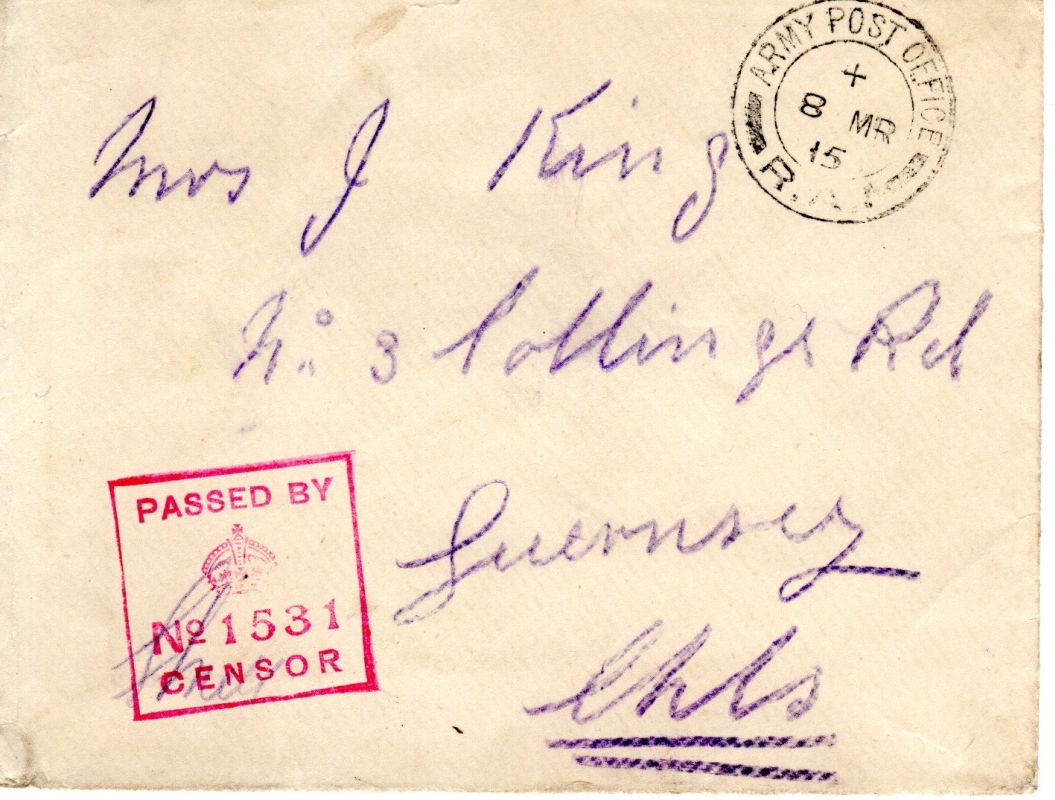 ARMY POST OFFICE
+
8 MR
15
Mrs J King
No. 3 Collings Rd
PASSED BY
Guernsey
No 1531
CENSOR
Chls